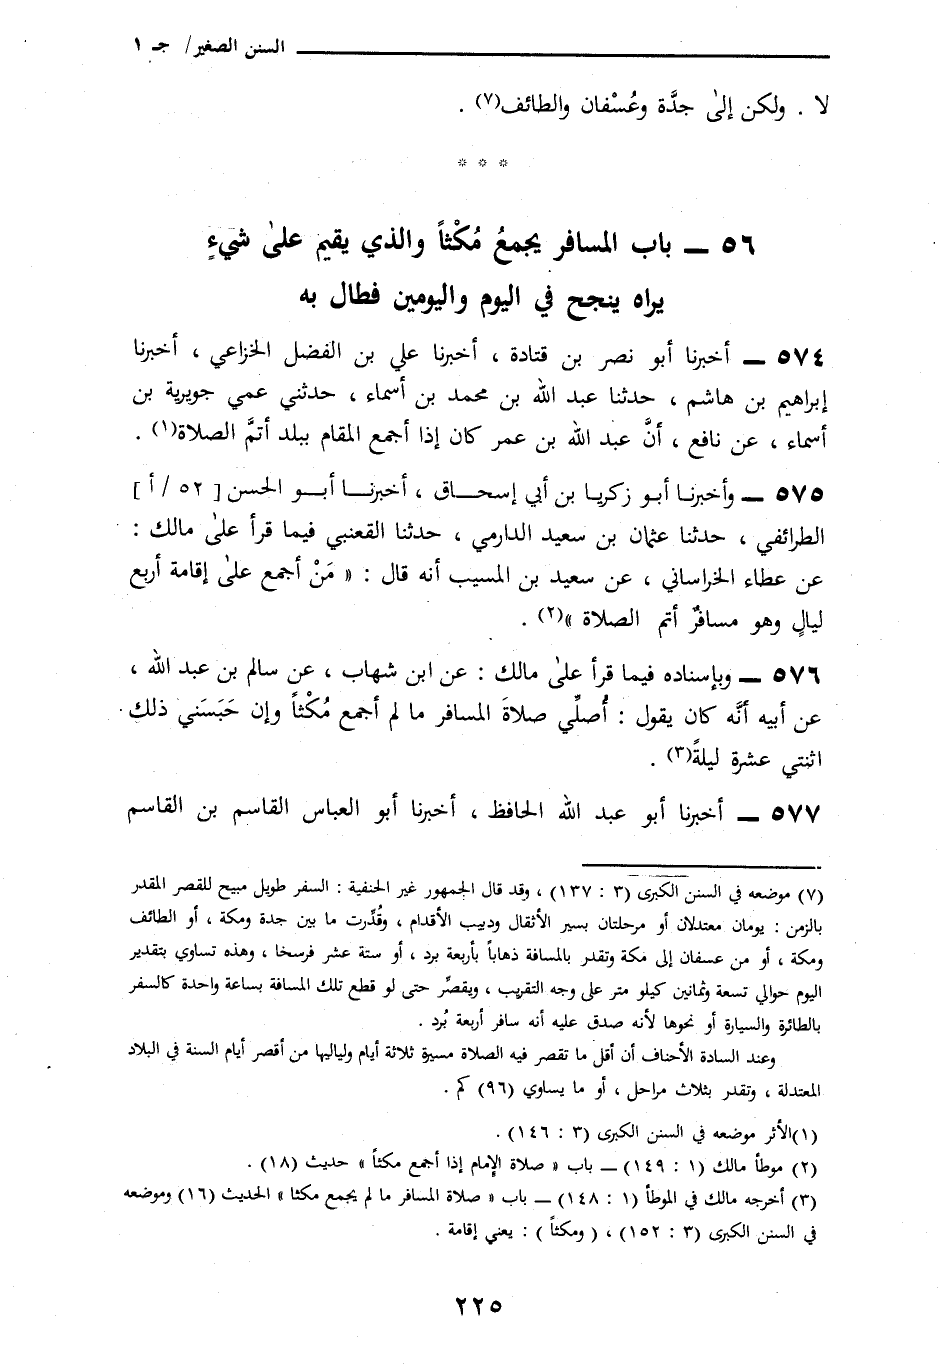 السنن الصغير/ جـ ١
لا . ولكن إلىٰ جدَّة وعُسْفان والطائف(٧) .
* * *
٥٦ ــ باب المسافر يجمعُ مُكْثاً والذي يقيم علىٰ شيءٍ
يراه ينجح في اليوم واليومين فطال به
٥٧٤ ــ أخبرنا أبو نصر بن قتادة ، أخبرنا علي بن الفضل الخزاعي ، أخبرنا
إبراهيم بن هاشم ، حدثنا عبد الله بن محمد بن أسماء ، حدثني عمي جويرية بن
أسماء ، عن نافع ، أنَّ عبد الله بن عمر كان إذا أجمع المقام ببلد أتمَّ الصلاة(١) .
٥٧٥ ــ وأخبرنـا أبـو زكريـا بن أبي إسحــاق ، أخبرنــا أبــو الحسن [ ٥٢ / أ ]
الطرائفي ، حدثنا عثمان بن سعيد الدارمي ، حدثنا القعنبي فيما قرأ علىٰ مالك :
عن عطاء الخراساني ، عن سعيد بن المسيب أنه قال : « مَنْ أجمع علىٰ إقامة أربع
ليالٍ وهو مسافرٌ أتم الصلاة »(٢) .
٥٧٦ ــ وبإسناده فيما قرأ علىٰ مالك : عن ابن شهاب ، عن سالم بن عبد الله ،
عن أبيه أنَّه كان يقول : أُصلِّي صلاةَ المسافر ما لم أجمع مُكْثاً وإن حَبَسَني ذلك
اثنتي عشرة ليلةً(٣) .
٥٧٧ ــ أخبرنا أبو عبد الله الحافظ ، أخبرنا أبو العباس القاسم بن القاسم
(٧) موضعه في السنن الكبرى (٣ : ١٣٧) ، وقد قال الجمهور غير الحنفية : السفر طويل مبيح للقصر المقدر
بالزمن : يومان معتدلان أو مرحلتان بسير الأثقال ودبيب الأقدام ، وقُدِّرت ما بين جدة ومكة ، أو الطائف
ومكة ، أو من عسفان إلى مكة وتقدر بالمسافة ذهاباً بأربعة برد ، أو ستة عشر فرسخا ، وهذه تساوي بتقدير
اليوم حوالي تسعة وثمانين كيلو متر على وجه التقريب ، ويقصِّر حتى لو قطع تلك المسافة بساعة واحدة كالسفر
بالطائرة والسيارة أو نحوها لأنه صدق عليه أنه سافر أربعة بُرد .
وعند السادة الأحناف أن أقل ما تقصر فيه الصلاة مسيرة ثلاثة أيام ولياليها من أقصر أيام السنة في البلاد
المعتدلة ، وتقدر بثلاث مراحل ، أو ما يساوي (٩٦) كم .
(١)الأثر موضعه في السنن الكبرى (٣ : ١٤٦) .
(٢) موطأ مالك (١ : ١٤٩) ــ باب « صلاة الإمام إذا أجمع مكثاً » حديث (١٨) .
(٣) أخرجه مالك في الموطأ (١ : ١٤٨) ــ باب « صلاة المسافر ما لم يجمع مكثا » الحديث (١٦) وموضعه
في السنن الكبرى (٣ : ١٥٢) ، ( ومكثاً ) : يعني إقامة .
٢٢٥